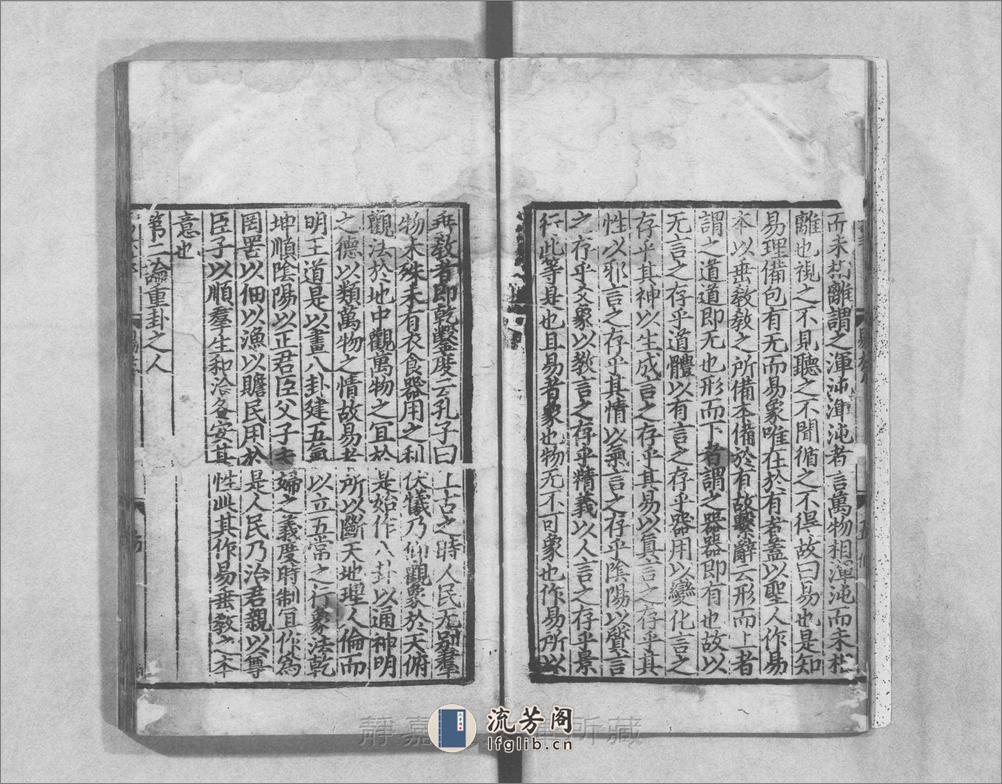 而未相離謂之渾沌渾沌者言萬物相渾沌而未相
離也視之不見聽之不聞循之不得故曰易也是知
易理備包有无而易象唯在於有者蓋以聖人作易
本以垂教教之所備本備於有故繫辭云形而上者
謂之道道即无也形而下者謂之器器即有也故以
无言之存乎道體以有言之存乎器用以變化言之
存乎其神以生成言之存乎其易以真言之存乎其
性以邪言之存乎其情以氣言之存乎陰陽以質言
之存乎爻象以教言之存乎精義以人言之存乎景
行此等是也且易者象也物无不可象也作易所以
垂教者即乾鑿度云孔子曰上古之時人民无別羣
物未殊未有衣食器用之利伏犧乃仰觀象於天俯
觀法於地中觀萬物之宜於是始作八卦以通神明
之德以類萬物之情故易者所以斷天地理人倫而
明王道是以畫八卦建五氣以立五常之行象法乾
坤順陰陽以正君臣父子夫婦之義度時制宜作為
罔罟以佃以漁以贍民用於是人民乃治君親以尊
臣子以順羣生和洽各安其性此其作易垂教之本
意也
第二論重卦之人
靜嘉
所藏
流芳阁
lfglib.cn